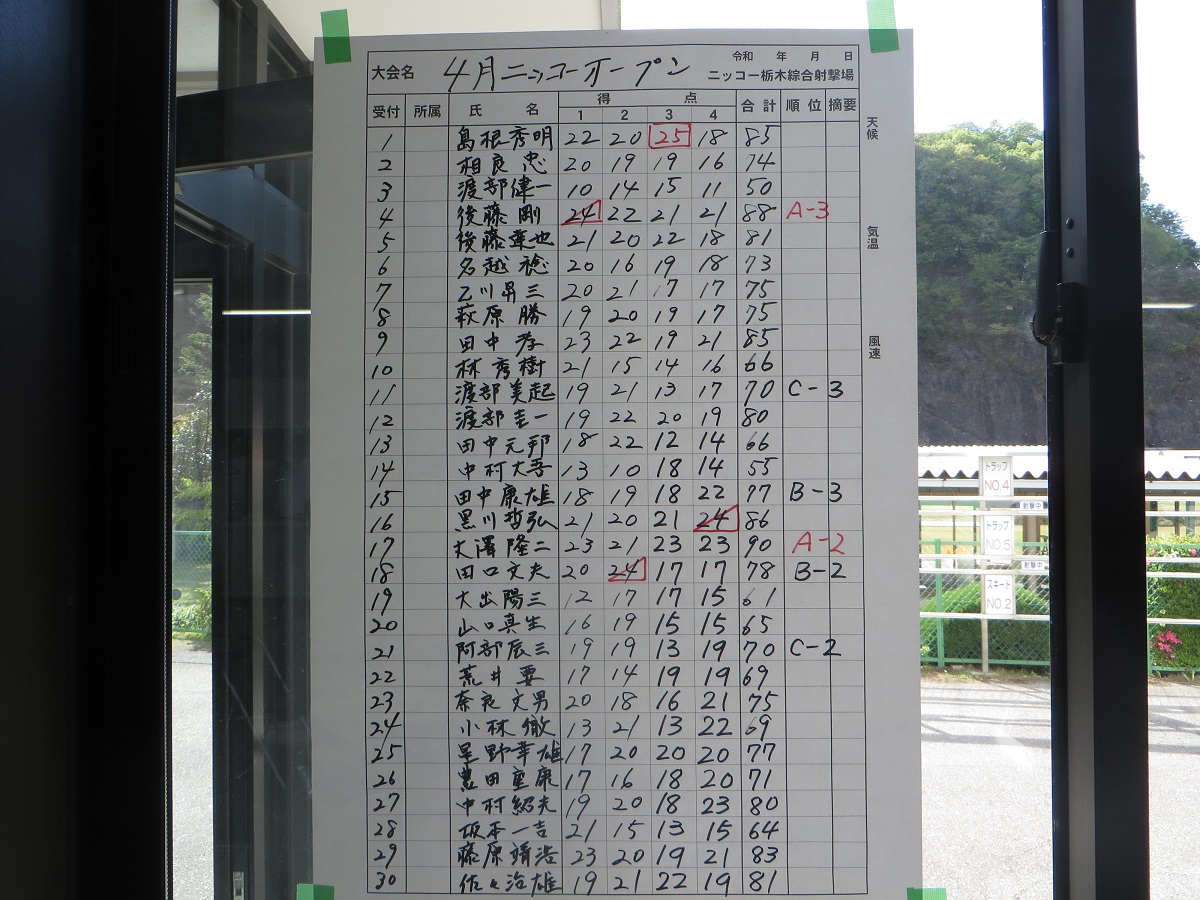 令和 年 月 日
大会名 4月ニッコーオープン ニッコー栃木綜合射撃場
受付 所属 氏名 得点 1 2 3 4 合計 順位 摘要
1 島根秀明 22 20 25 18 85
2 相良忠 20 19 19 16 74
3 渡部健一 10 14 15 11 50
4 後藤剛 24 22 21 21 88 A-3
5 後藤章也 21 20 22 18 81
6 名越稔 20 16 19 18 73
7 乙川昇三 20 21 17 17 75
8 萩原勝 19 20 19 17 75
9 田中孝 23 22 19 21 85
10 林秀樹 21 15 14 16 66
11 渡部美起 19 21 13 17 70 C-3
12 渡部圭一 19 22 20 19 80
13 田中元邦 18 22 12 14 66
14 中村大吾 13 10 18 14 55
15 田中康雄 18 19 18 22 77 B-3
16 黒川哲弘 21 20 21 24 86
17 大澤隆二 23 21 23 23 90 A-2
18 田口文夫 20 24 17 17 78 B-2
19 大出陽三 12 17 17 15 61
20 山口真生 16 19 15 15 65
21 阿部辰三 19 19 13 19 70 C-2
22 荒井要 17 14 19 19 69
23 奈良文男 20 18 16 21 75
24 小林徹 13 21 13 22 69
25 星野幸雄 17 20 20 20 77
26 豊田重康 17 16 18 20 71
27 中村紹夫 19 20 18 23 80
28 坂本一吉 21 15 13 15 64
29 藤原靖浩 23 20 19 21 83
30 佐々治雄 19 21 22 19 81
天候
気温
風速
トラップ
NO.4
射撃中
トラップ
NO.5
射撃中
スキート
NO.2